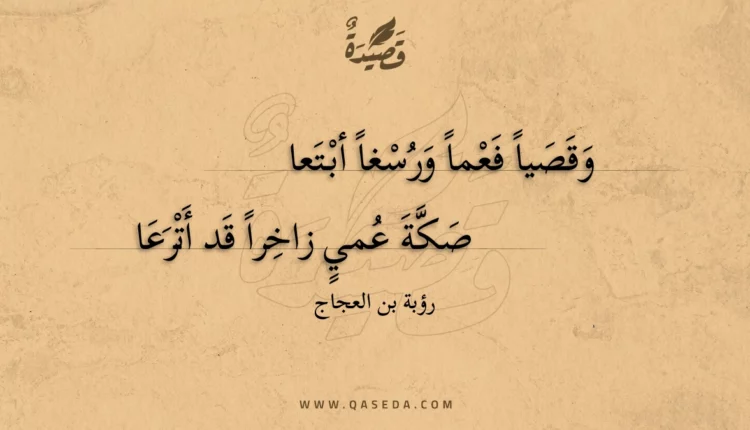 قَصِيدَةٌ
وَقَصَياً فَعْماً وَرُسْغاً أبْتَعا
صَكَّةَ عُميٍ زاخِراً قَد أَتْرَعَا
رؤبة بن العجاج
WWW.QASEDA.COM